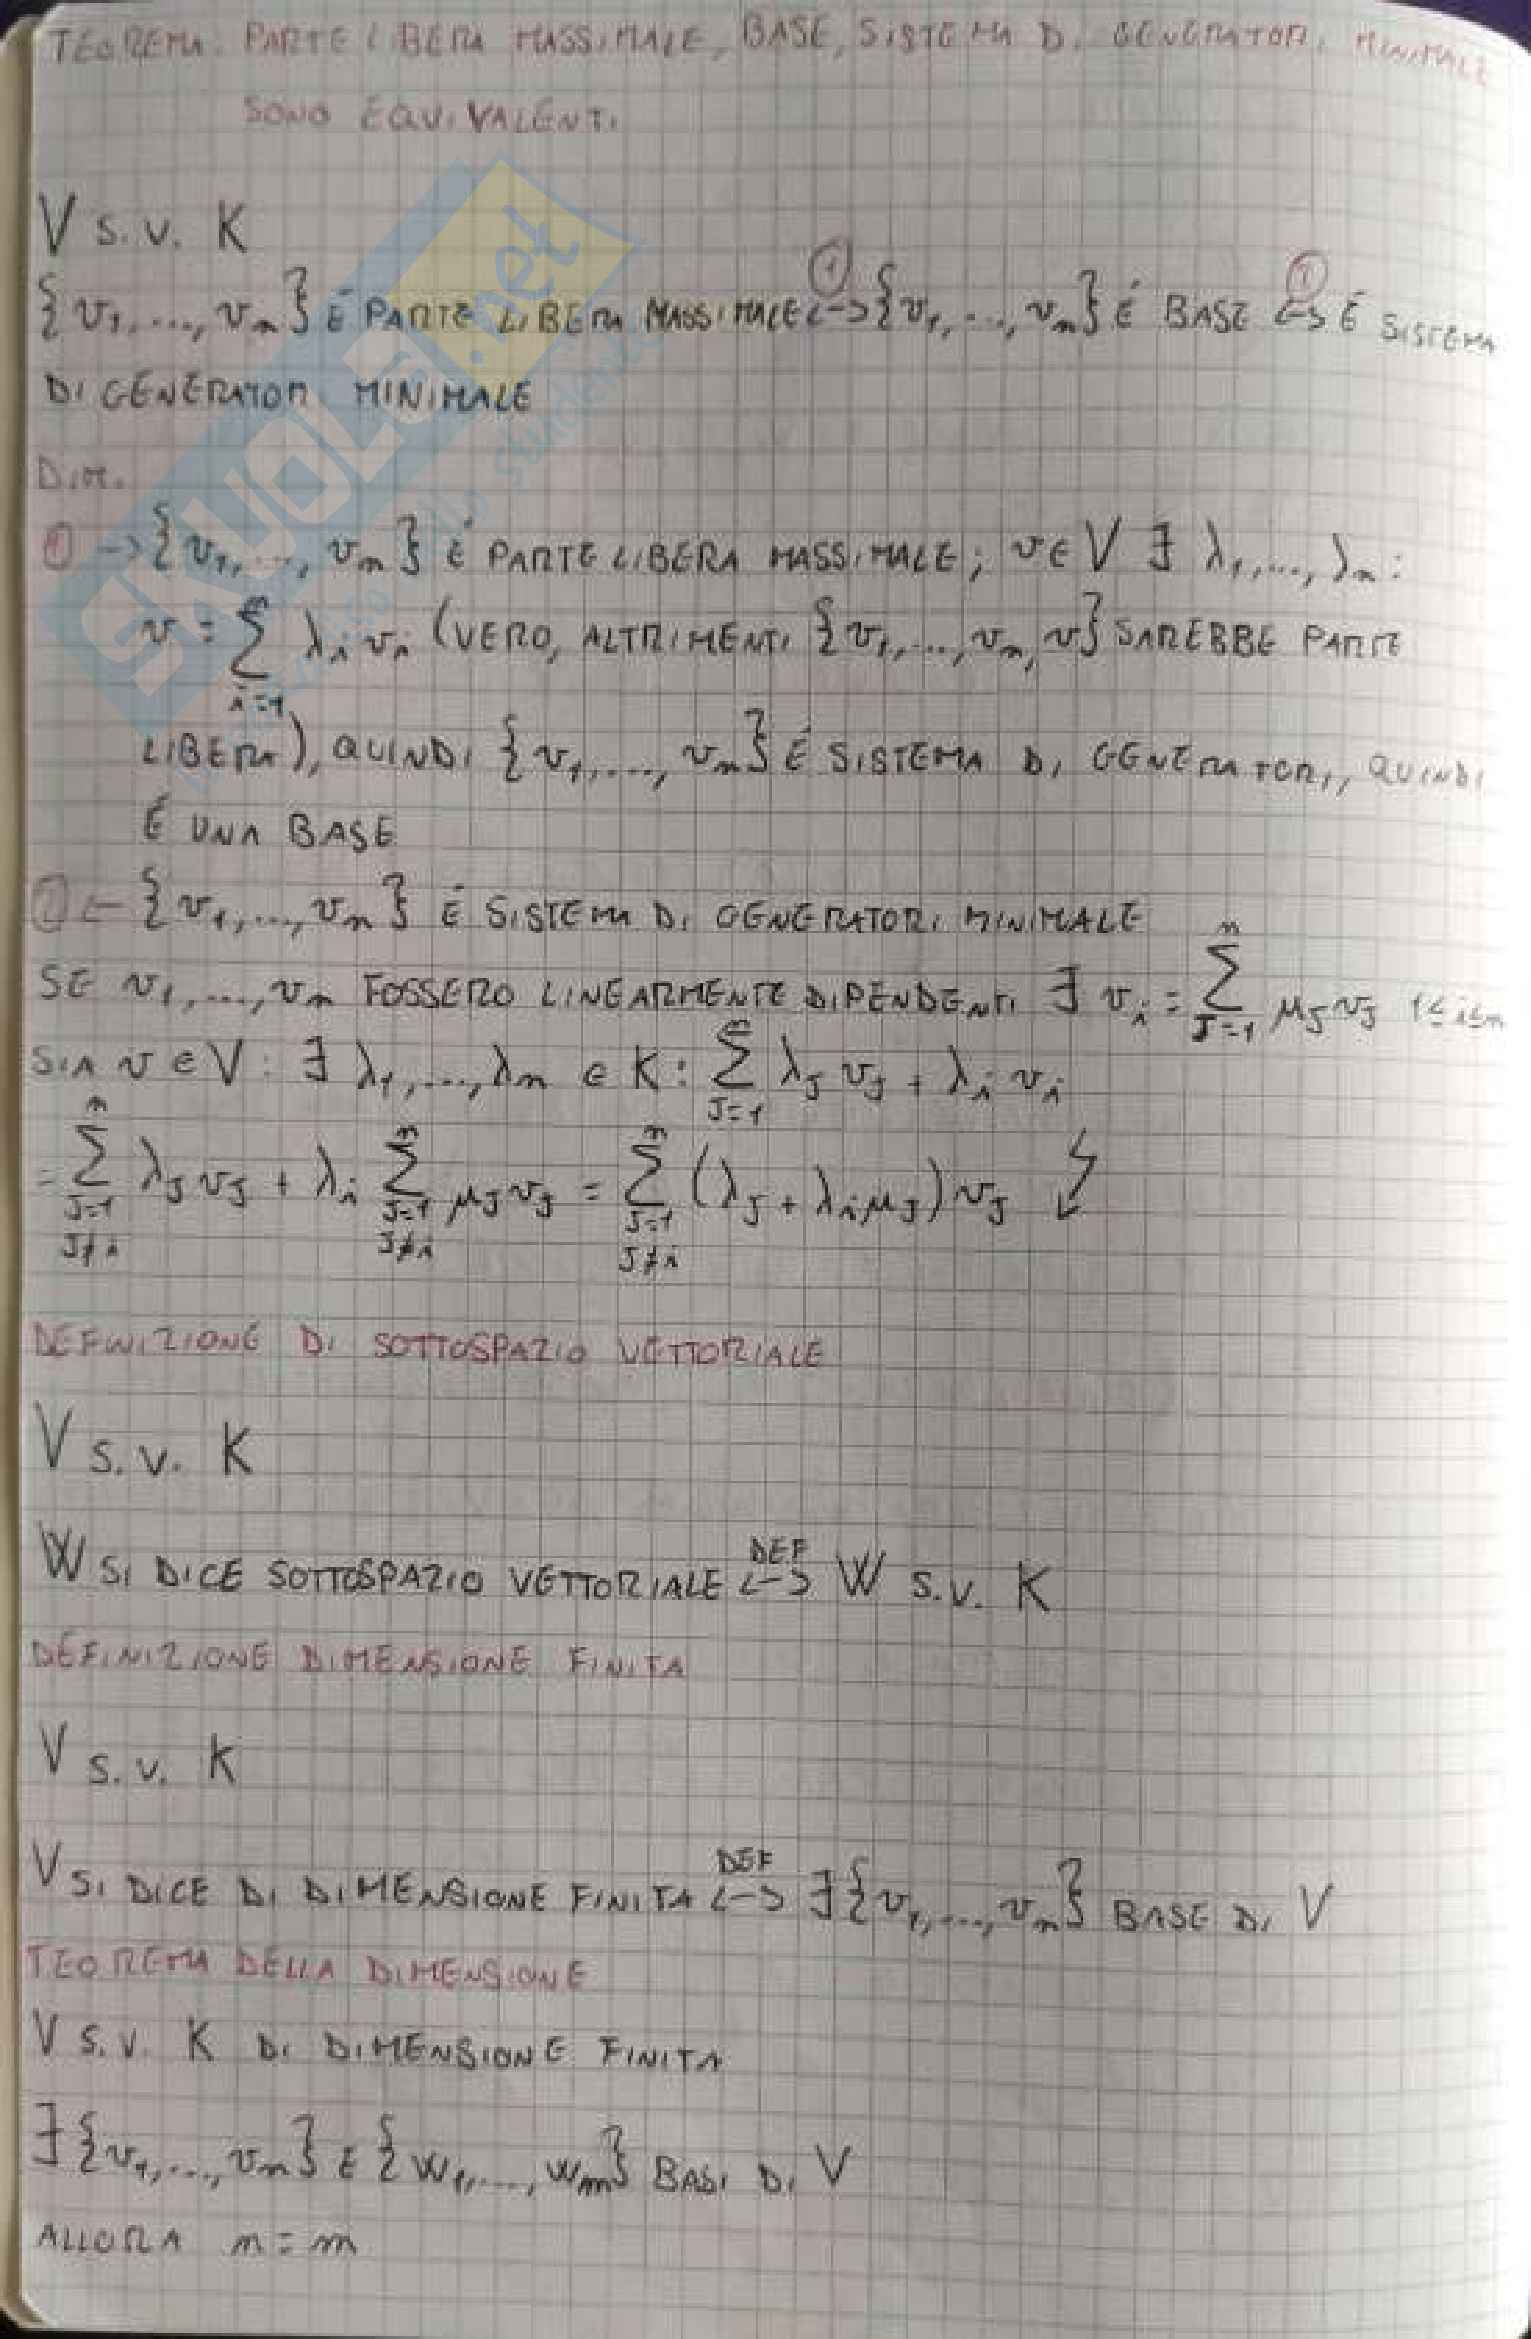 TEOREMA: PARTE LIBERA MASSIMALE, BASE, SISTEMA DI GENERATORI MINIMALE
SONO EQUIVALENTI
V s.v. K
{v₁,...,vₙ} É PARTE LIBERA MASSIMALE <-> {v₁,...,vₙ} É BASE <-> É SISTEMA
① 
DI GENERATORI MINIMALE
DIM.
① -> {v₁,...,vₙ} É PARTE LIBERA MASSIMALE; v∈V ∃ λ₁,...,λₙ:
v = ∑ⁿᵢ₌₁ λᵢvᵢ (VERO, ALTRIMENTI {v₁,...,vₙ,v} SAREBBE PARTE
LIBERA), QUINDI {v₁,...,vₙ} É SISTEMA DI GENERATORI, QUINDI
É UNA BASE
<- {v₁,...,vₙ} É SISTEMA DI GENERATORI MINIMALE
SE v₁,...,vₙ FOSSERO LINEARMENTE DIPENDENTI ∃ vᵢ = ∑ⁿⱼ₌₁ μⱼvⱼ 1≤i≤n
SIA v∈V: ∃ λ₁,...,λₙ ∈ K: ∑ⁿⱼ₌₁ λⱼvⱼ + λᵢvᵢ
= ∑ⁿ(J=1, J≠i) λⱼvⱼ + λᵢ ∑ⁿ(J=1, J≠i) μⱼvⱼ = ∑ⁿ(J=1, J≠i) (λⱼ + λᵢμⱼ)vⱼ ↯
DEFINIZIONE DI SOTTOSPAZIO VETTORIALE
V s.v. K
W SI DICE SOTTOSPAZIO VETTORIALE <-> DEF W s.v. K
DEFINIZIONE DIMENSIONE FINITA
V s.v. K
V SI DICE DI DIMENSIONE FINITA <-> DEF ∃ {v₁,...,vₙ} BASE DI V
TEOREMA DELLA DIMENSIONE
V s.v. K DI DIMENSIONE FINITA
∃ {v₁,...,vₙ} E {w₁,...,wₘ} BASI DI V
ALLORA n = m
SKUOLa.net